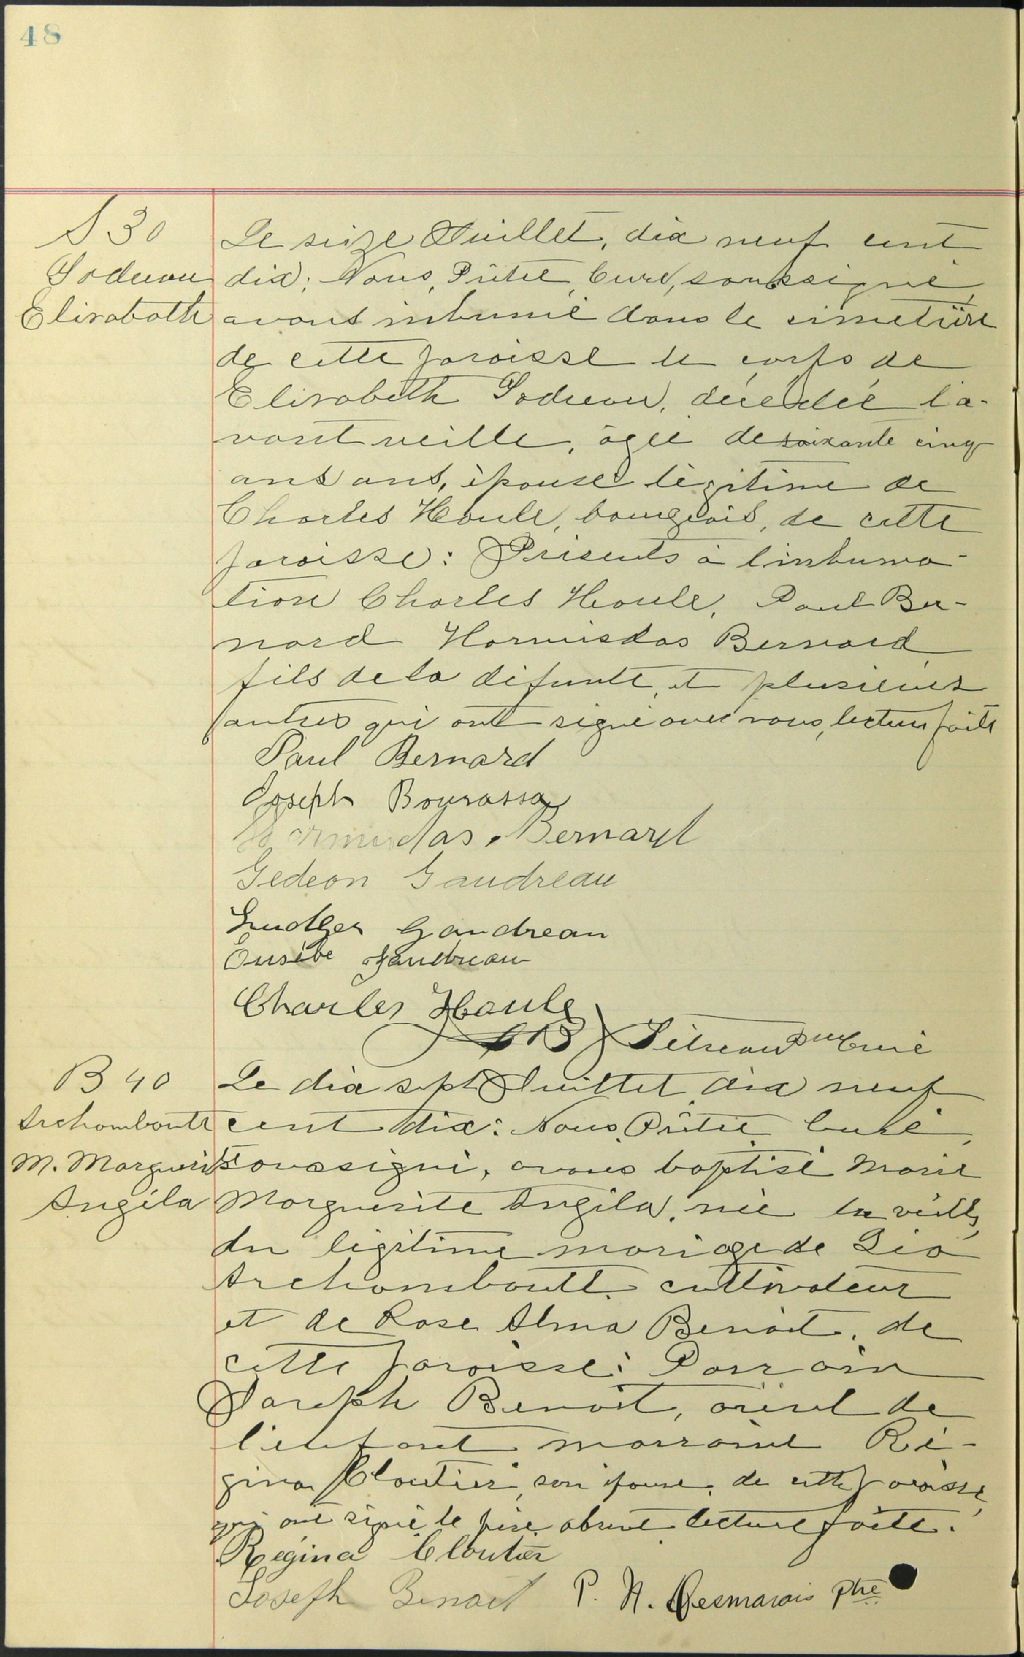 48
S 30
Godreau
Elisabeth
Le seize Juillet, dix neuf cent
dix; Nous, Prêtre, Curé, soussigné,
avons inhumé dans le cimetière
de cette paroisse le corps de
Elisabeth Godreau, décédée l'a-
vant veille, âgée de soixante cinq
ans ans, épouse légitime de
Charles Houle, bourgeois, de cette
paroisse: Présents à l'inhuma-
tion Charles Houle, Paul Ber-
nard Hormisdas Bernard,
fils de la défunte, et plusieurs
autres qui ont signé avec nous, lecture faite
Paul Bernard
Joseph Bourassa
Hormidas. Bernard
Gedeon Gaudreau
Ludger Gaudreau
Eusèbe Gaudreau
Charles Houle
Ptre Curé
B 40
Archamboult
M. Marguerite
Angéla
Le dix sept Juillet dix neuf
cent dix: Nous, Prêtre Curé,
soussigné, avons baptisé Marie
Marguerite Angéla, née la veille,
du légitime mariage de Léo
Archamboult cultivateur
et de Rose Alma Benoit, de
cette paroisse: Parrain
Joseph Benoit, aïeul de
l'enfant marraine Ré-
gina Cloutier, son épouse, de cette paroisse,
qui ont signé le père absent lecture faite.
Régina Cloutier
Joseph Benoit P. N. Desmarais ptre